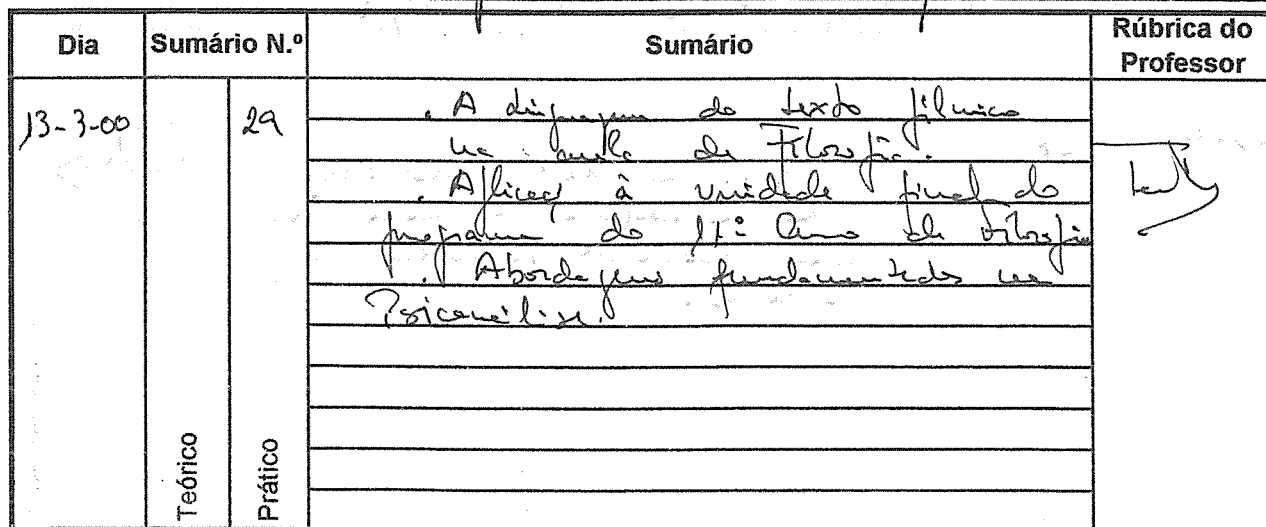 Dia Sumário N.º Sumário Rúbrica do Professor
13-3-00 29 . A linguagem do texto fílmico
na aula de Filosofia.
. Aplicaç à unidade final do
programa do 11º Ano de Filosofia
. Abordagens fundamentadas na
Psicanálise.
Teórico
Prático